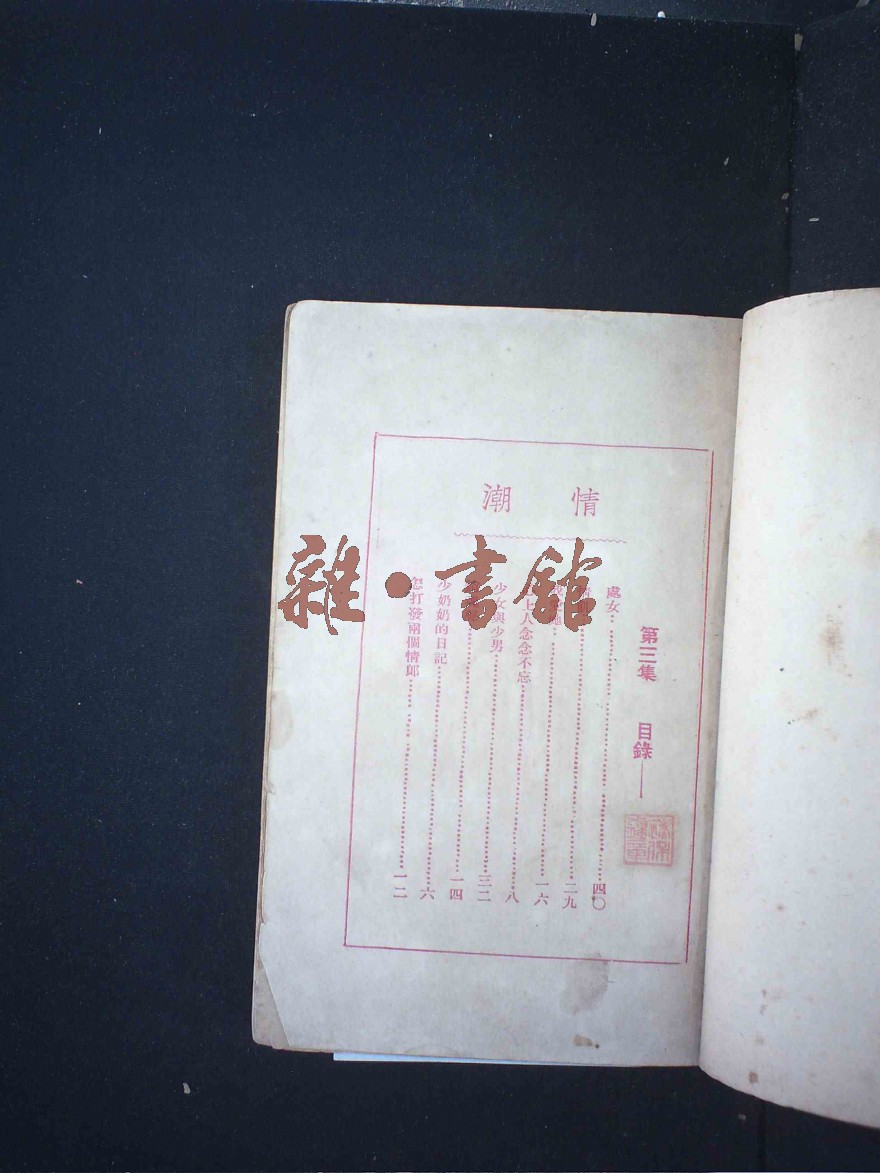 情潮
第三集 目錄
處女 四〇
二九
一六
上人念念不忘 八
少女與少男 三二
一四
少奶奶的日記 六
怎打發兩個情郎 一二
雜·書館